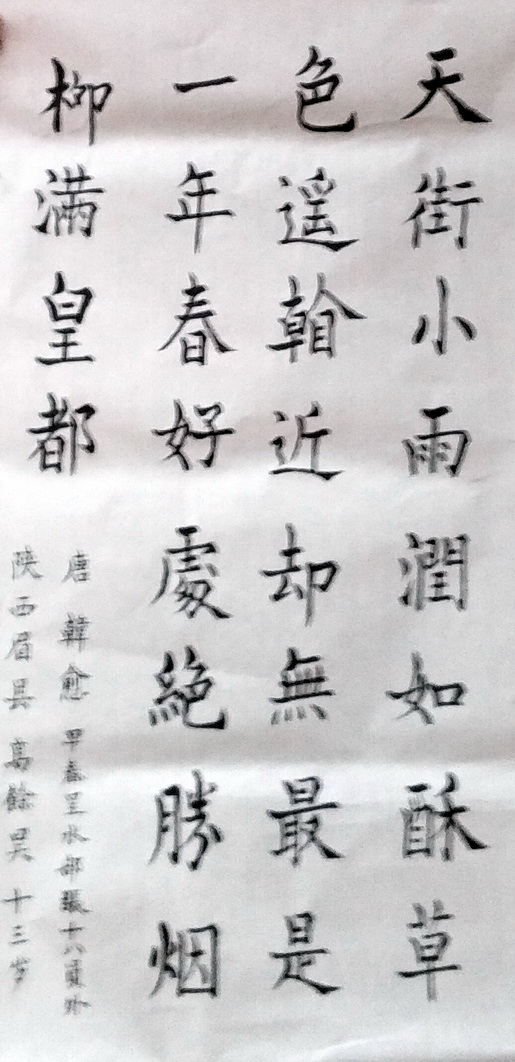 天街小雨潤如酥草
色遥看近却無最是
一年春好處絶勝烟
柳滿皇都
唐 韓愈 早春呈水部張十八員外
陕西眉县 高餘昊 十三岁